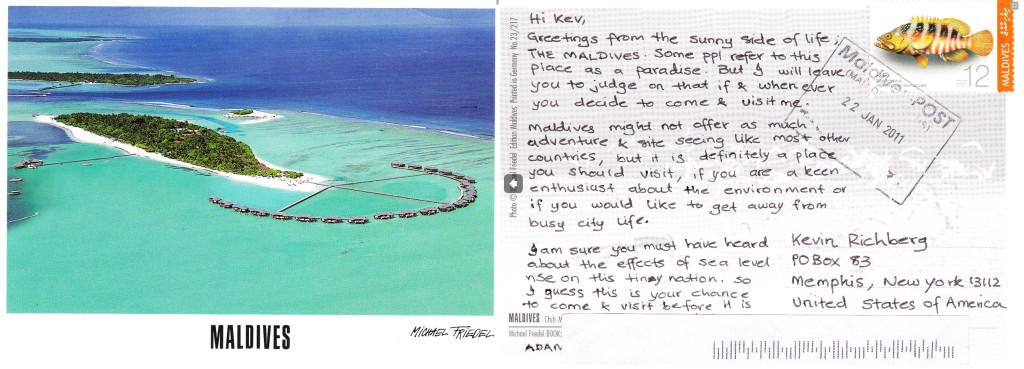 MALDIVES
MICHAEL FRIEDEL
Hi Kev,
Greetings from the sunny side of life;
THE MALDIVES. Some ppl refer to this
place as a paradise. But I will leave
you to judge on that if & when ever
you decide to come & visit me.
Maldives might not offer as much
adventure & site seeing like most other
countries, but it is definitely a place
you should visit, if you are a keen
enthusiast about the environment or
if you would like to get away from
busy city life.
I am sure you must have heard
about the effects of sea level
rise on this tiny nation. So
I guess this is your chance
to come & visit before it is
MALDIVES Club M
Michael Friedel BOOK:
ADAM
Edition Maldives Printed in Germany No 23/217
Photo ©
Friedel
MALDIVES
RF 12
Maldives POST
22 JAN 2011
Kevin Richberg
PO Box 83
Memphis, New York 13112
United States of America